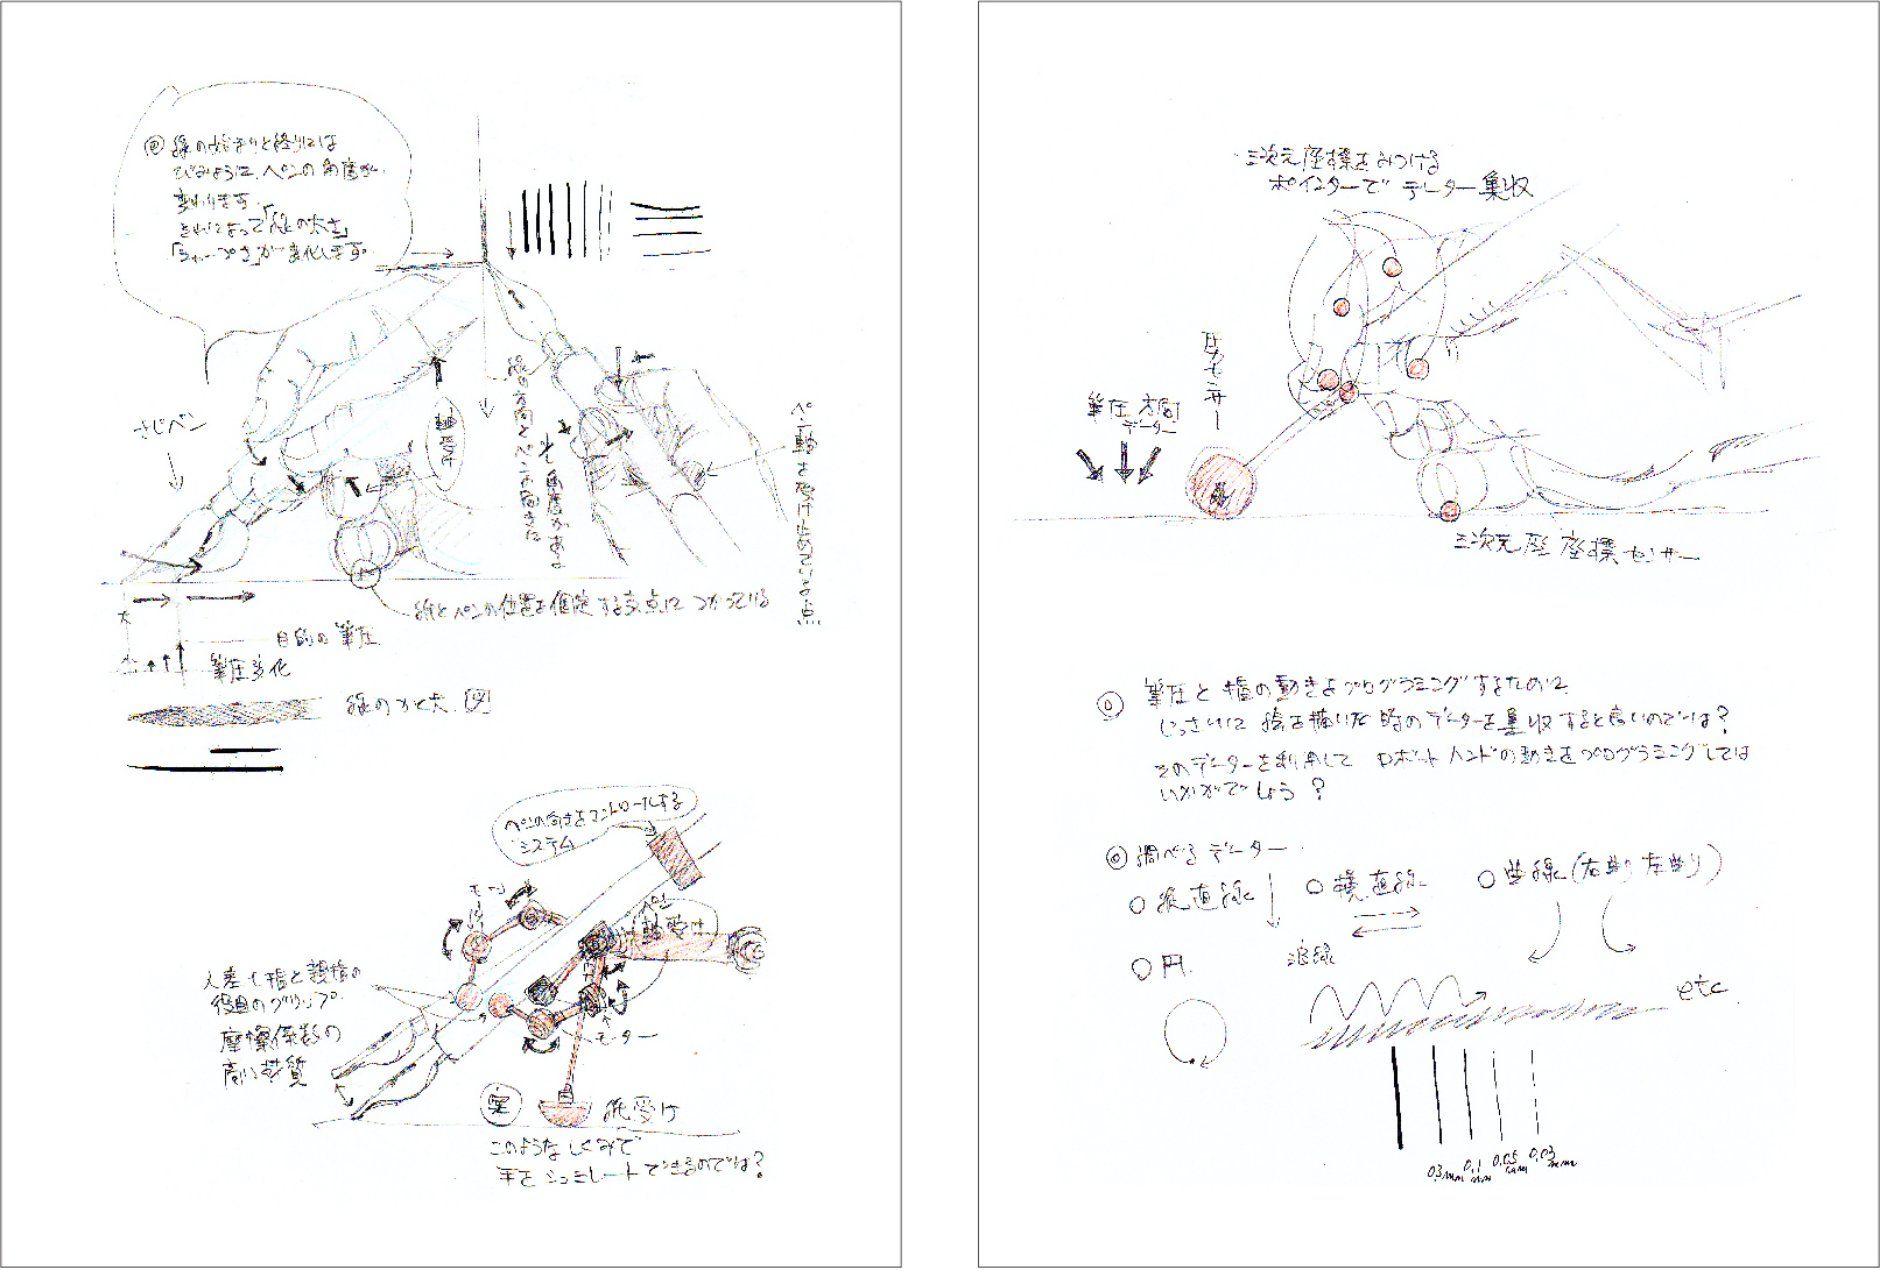 線の始まりと終りには
びみょうに、ペンの角度が
変わります。
それによって「線の太さ」
「シャープさ」が変化します。
さじペン
軸受
線の方向とペンの向きに
少し角度がある
ペン軸を受け止めている点
紙とペンの位置を固定する支点につかっている
目的の筆圧
筆圧変化
線のかく大図
ペンの向きをコントロールする
システム
モーター
ペン
軸受け
人差し指と親指の
役目のグリップ
摩擦係数の
高い材質
モーター
案
紙受け
このようなしくみで
手をシュミレートできるのでは?
三次元座標をみつける
ポインターでデーター集収
圧力センサー
筆圧 方向
データー
三次元座 座標センサー
◎ 筆圧と指の動きをプログラミングするために
じっさいに絵を描いた時のデーターを集収すると良いのでは?
そのデーターを利用して ロボットハンドの動きをプログラミングしては
いかがでしょう?
◎ 調べるデーター
○ 縦直線
○ 横直線
○ 曲線(右曲り 左曲り)
○ 円
波線
etc
0.3mm
0.1mm
0.05mm
0.03mm